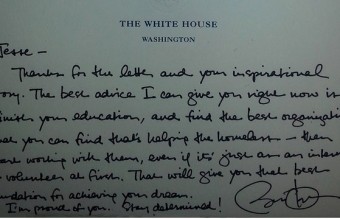 THE WHITE HOUSE
WASHINGTON
Jesse –
Thanks for the letter and your inspirational
ory. The best advice I can give you right now is
inish your education, and find the best organizatio
you can find that's helping the homeless – then
working with them, even if it's just as an intern
volunteer at first. That will give you that best
undation for achieving your dream.
I'm proud of you. Stay determined!